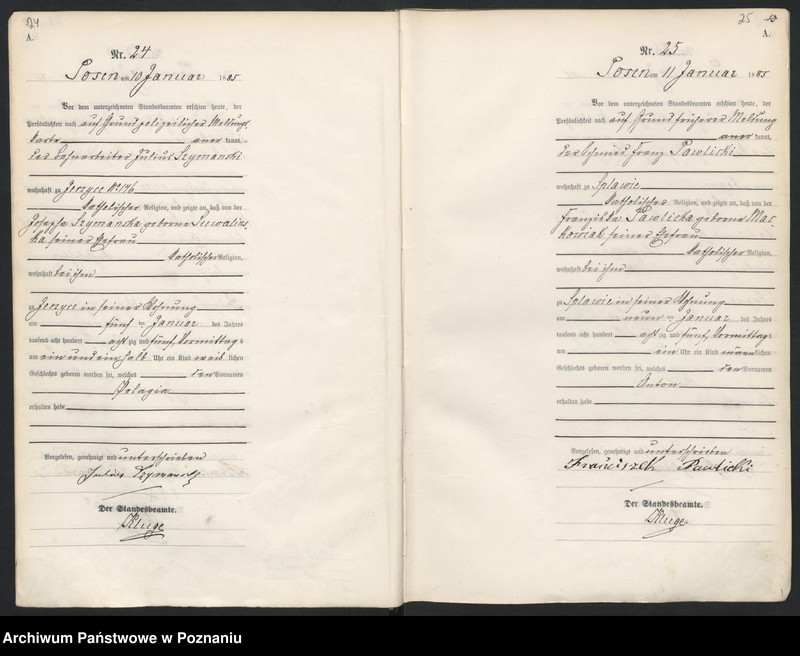 24
A.
Nr. 24
Posen am 10 Januar 1885
Vor dem unterzeichneten Standesbeamten erschien heute, der
Persönlichkeit nach auf Grund polizeilicher Meldungs
karte aner kannt,
der Julius Szymanski
wohnhaft zu Jerzyce No 146
katholischer Religion, und zeigte an, daß von der
Josepha Szymanska geborne
ka seiner Ehefrau
katholischer Religion,
wohnhaft bei ihm
zu Jerzyce in seiner Wohnung
am fünf ten Januar des Jahres
tausend acht hundert acht zig und fünf, Vormittag s
um ein und ein halb Uhr ein Kind weib lichen
Geschlechts geboren worden sei, welches den Vornamen
Pelagia
erhalten habe
Vorgelesen, genehmigt und unterschrieben
Julius Szymanski
Der Standesbeamte.
Kluge
25
A.
Nr. 25
Posen am 11 Januar 1885
Vor dem unterzeichneten Standesbeamten erschien heute, der
Persönlichkeit nach auf Grund früherer Meldung
aner kannt,
der Schmied Franz Pawlicki
wohnhaft zu Splawie
katholischer Religion, und zeigte an, daß von der
Franziska Pawlicka geborene Mac-
kowiak seiner Ehefrau
katholischer Religion,
wohnhaft bei ihm
zu Splawie in seiner Wohnung
am neun ten Januar des Jahres
tausend acht hundert acht zig und fünf, Vormittag s
um ein Uhr ein Kind männ lichen
Geschlechts geboren worden sei, welches den Vornamen
Anton
erhalten habe
Vorgelesen, genehmigt und unterschrieben
Franciszek Pawlicki
Der Standesbeamte.
Kluge
Archiwum Państwowe w Poznaniu